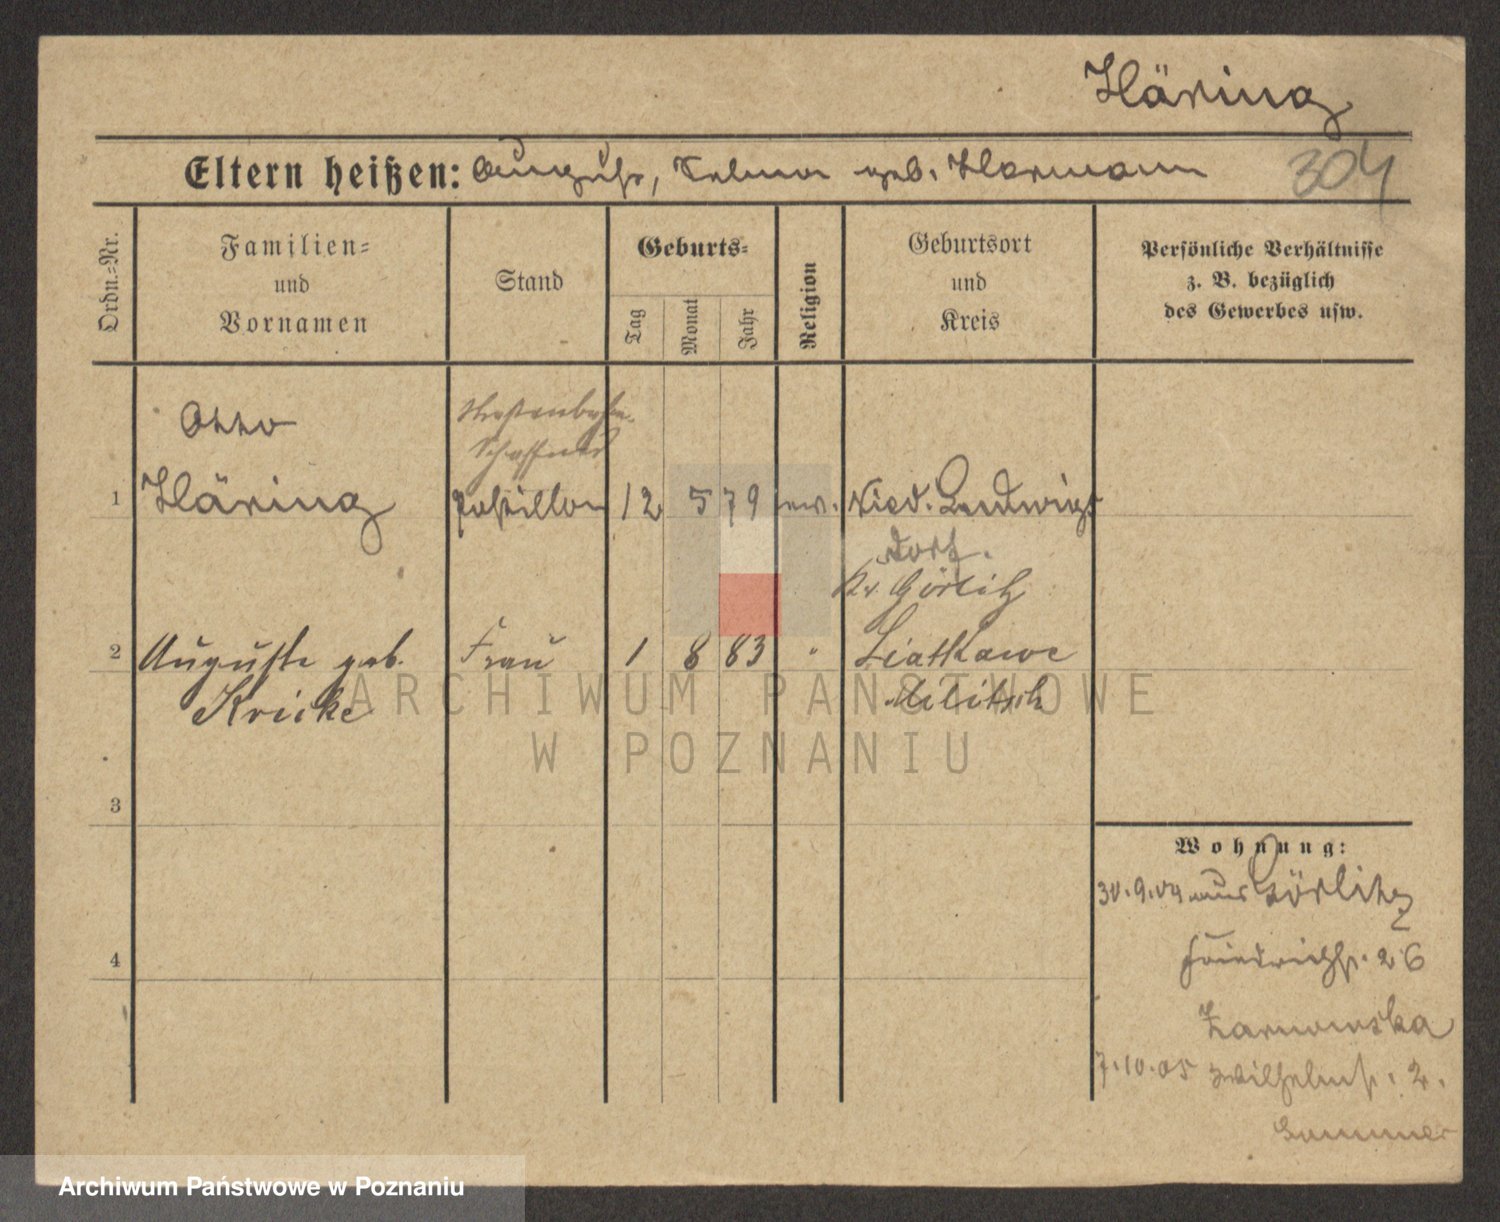 Häring
Eltern heißen: August, Selma geb. Hermann
304
Ordn.=Nr.
Familien=
und
Vornamen
Stand
Geburts=
Tag
Monat
Jahr
Religion
Geburtsort
und
Kreis
Persönliche Verhältnisse
z. B. bezüglich
des Gewerbes usw.
Otto
Schaffner
1 Häring Postillon 12 5 79 ev. Nied. Ludwigs
dorf.
Kr. Görlitz
2 Auguste geb. Frau 1 8 83 " Liatkawe
Kricke Militsch
3
4
Wohnung:
30.9.04 aus Görlitz
Friedrichst. 26
Zarnowska
7.10.05 Wilhelmst. 2.
Sommer
ARCHIWUM PAŃSTWOWE
W POZNANIU
Archiwum Państwowe w Poznaniu